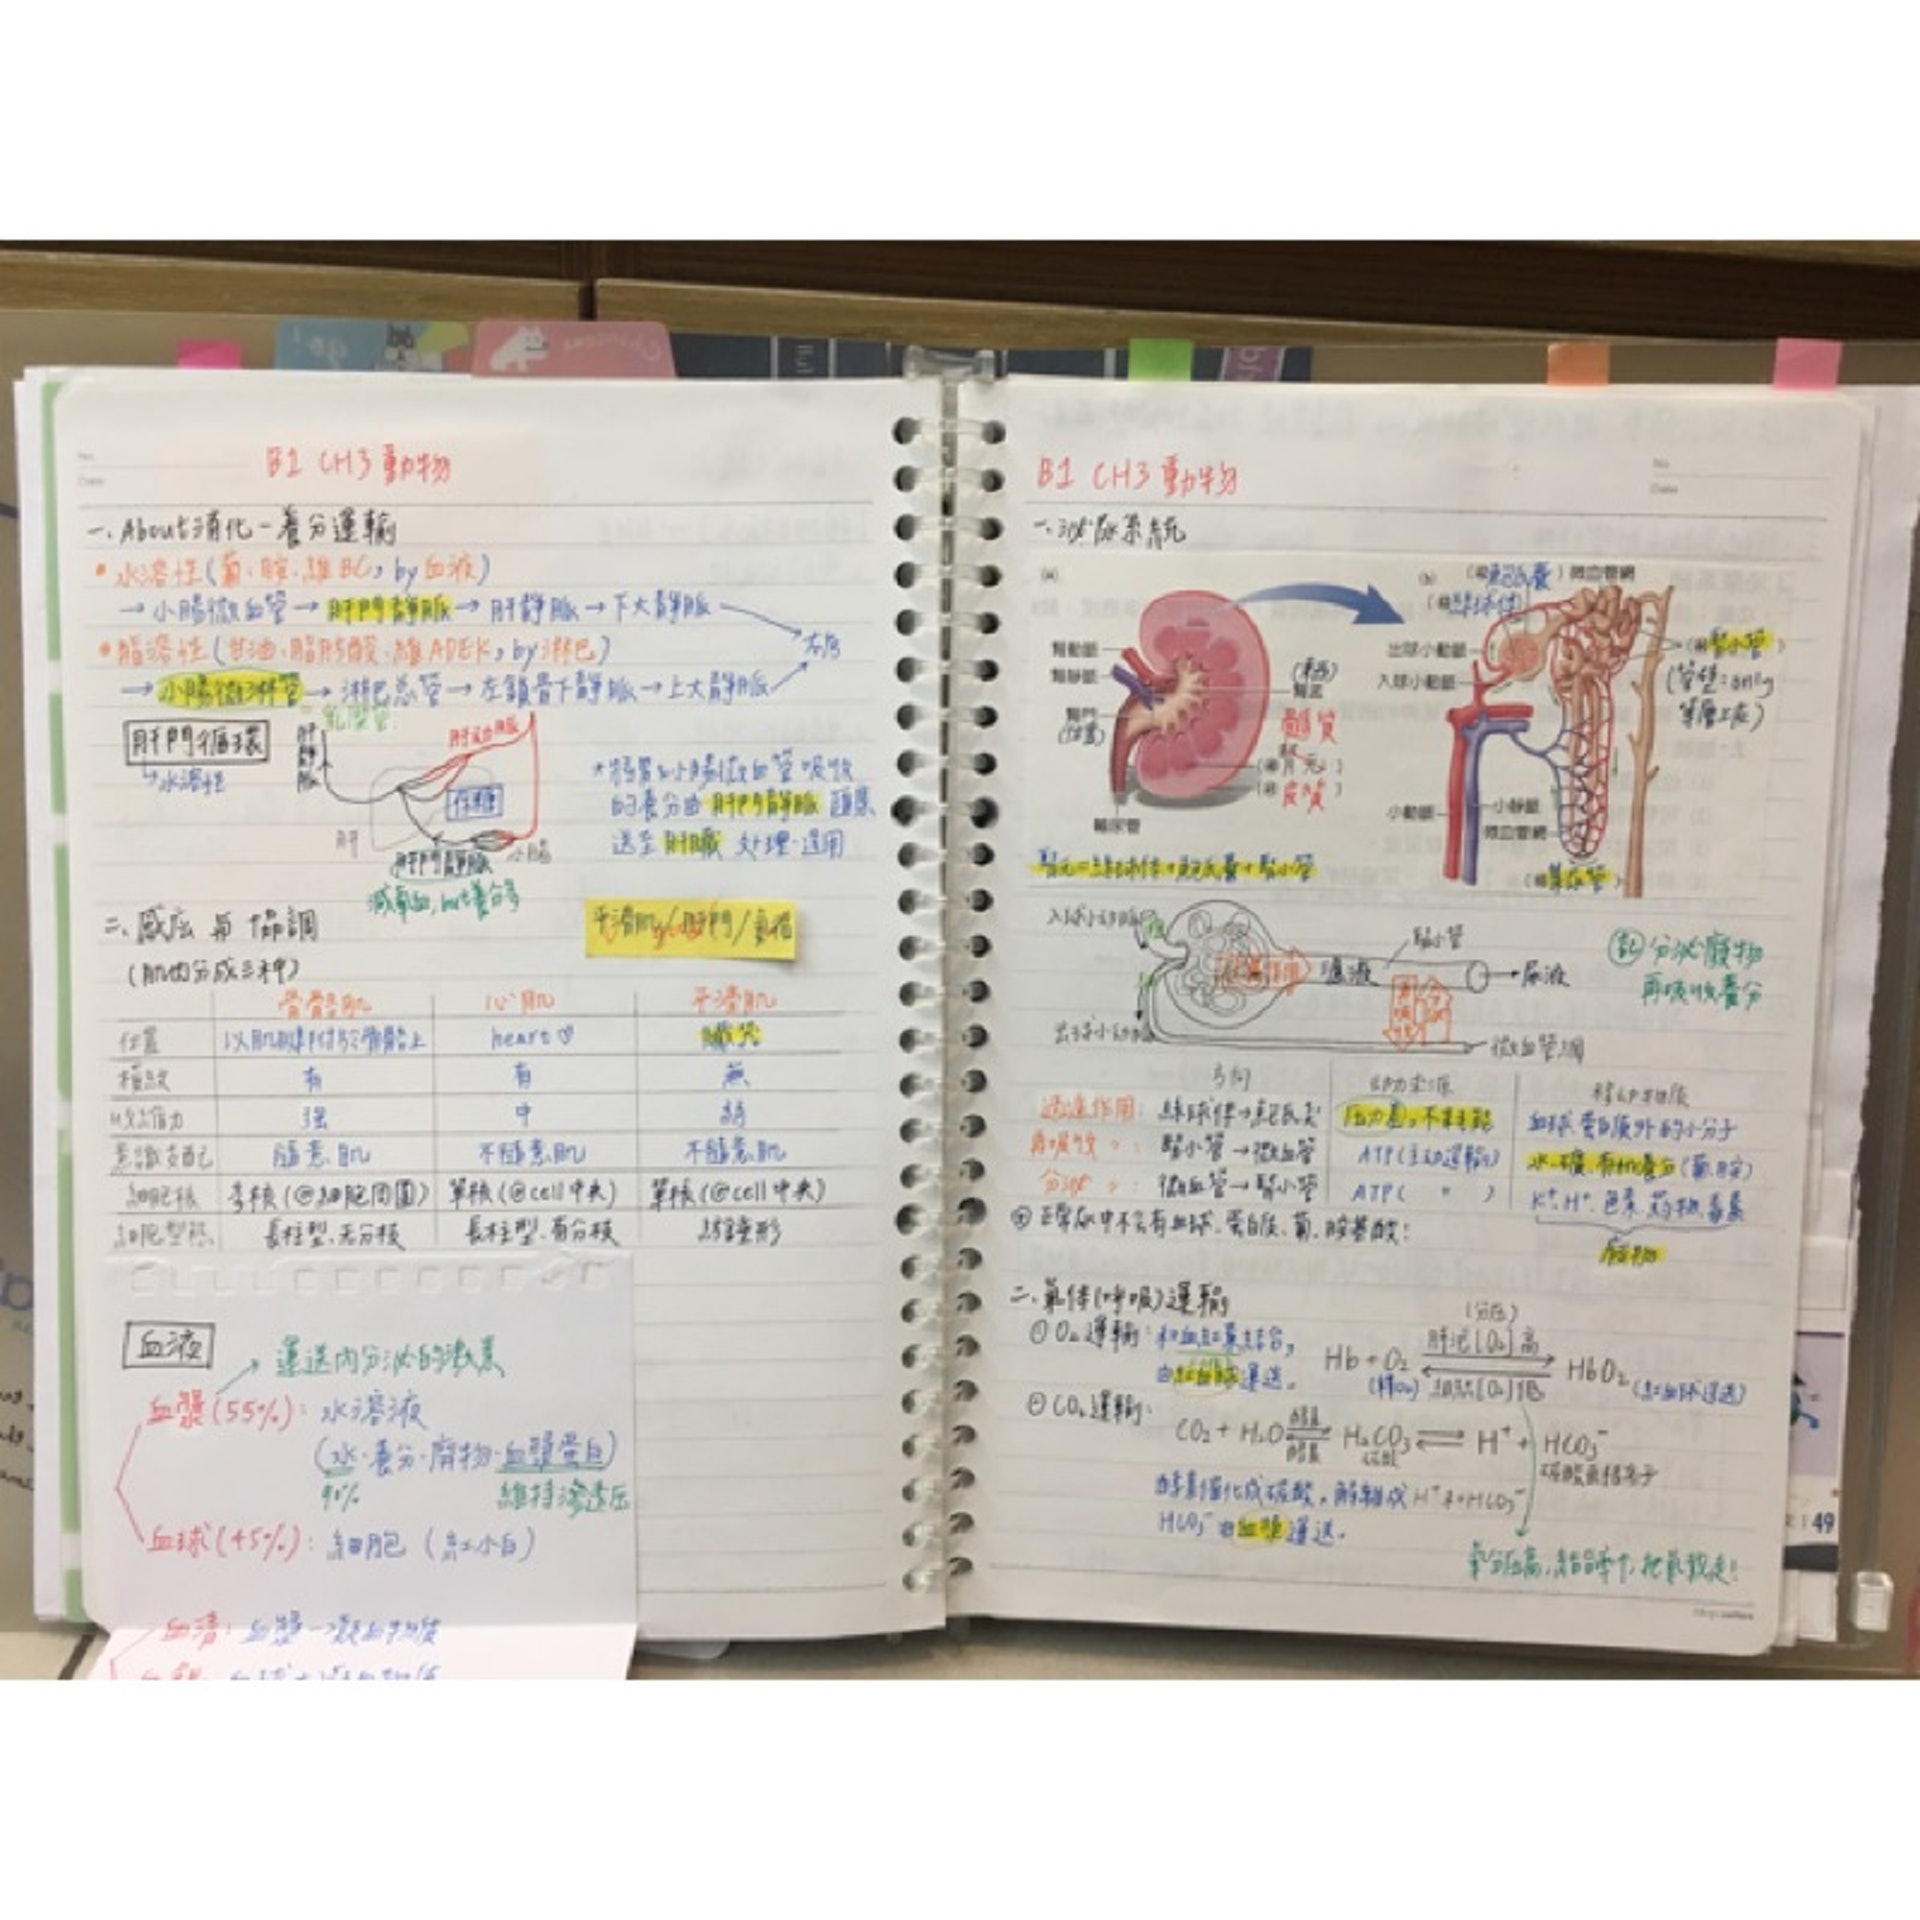 B1 CH3 動物
一. About消化-養分運輸
• 水溶性(葡、胺、維BC, by 血液)
→ 小腸微血管 → 肝門靜脈 → 肝靜脈 → 下大靜脈
• 脂溶性(甘油、脂肪酸、維ADEK, by 淋巴)
右房
→ 小腸 → 淋巴總管 → 左鎖骨下靜脈 → 上大靜脈
乳糜管
肝門循環
水溶性
肝靜脈
肝
肝門靜脈
小腸
減氧血, but養分多
的養分由肝門靜脈
送至肝臟 处理·運用
二. 感應與協調
平滑肌/肝門/
(肌肉分成三種)
骨骼肌 心肌 平滑肌
位置 heart♡
橫紋 有 有 無
收縮力 強 中 弱
意識支配 隨意肌 不隨意肌 不隨意肌
細胞核 多核(@細胞周圍) 單核(@cell中央) 單核(@cell中央)
細胞型態 長柱型、无分枝 長柱型、有分枝
血液
運送內分泌的激素
血漿(55%): 水溶液
(水·養分·廢物·血漿蛋白)
90% 維持滲透压
血球(45%): 細胞 (紅小白)
血清: 血漿-凝血物質
B1 CH3 動物
一. 泌尿系統
(a)
腎動脈
腎靜脈
腎門
腎盂
髓質
皮質
輸尿管
(b)
微血管網
出球小動脈
入球小動脈
腎小管
(管壁: only
單層上皮)
小動脈
小靜脈
微血管網
集尿管
腎元=絲球体+鮑氏囊+腎小管
入球小動脈
濾液
腎小管
尿液
出球小動脈
微血管網
分泌廢物
再吸收養分
方向 動力來源 移動物質
過濾作用: 絲球体→鮑氏囊 压力差, 血球、蛋白質外的小分子
再吸收〃: 腎小管→微血管 ATP(主動運輸) 水、礦、有机養分(葡、胺)
分泌〃: 微血管→腎小管 ATP( 〃 ) K⁺、H⁺、色素、葯物、毒素
廢物
正常尿中不含有血球、蛋白質、葡、胺基酸!
二. 氣体(呼吸)運輸
(分压)
① O₂運輸: 和血紅素結合,
由紅血球運送。
Hb + O₂ 肺泡[O₂]高 組織[O₂]低 HbO₂ (紅血球運送)
② CO₂運輸:
CO₂ + H₂O 酵素 酵素 H₂CO₃ ⇌ H⁺ + HCO₃⁻
碳酸 碳酸氫根离子
酵素催化成碳酸, 解離成H⁺和HCO₃⁻
HCO₃⁻由血漿運送。
49